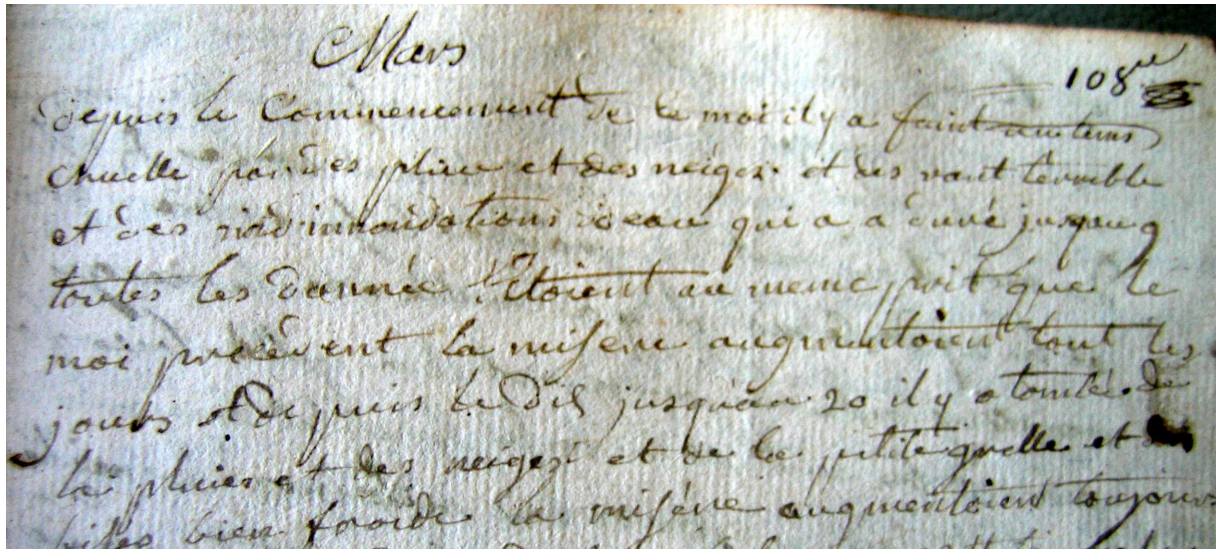 Mars
108
depuis le Commencement de ce moi il y a faint un tems
cruelle par des pluie et des neiges et des vant terrible
et des innondations deau qui a a duré jusqau 9
toutes les danrée Etoient au meme prit que le
moi precedent la misere augmentoient tout les
jours et depuis le Dis jusquau 20 il y a tombé de
la pluies et des neiges et de la petite grelle et des
bien froide la misére augmentoient toujours